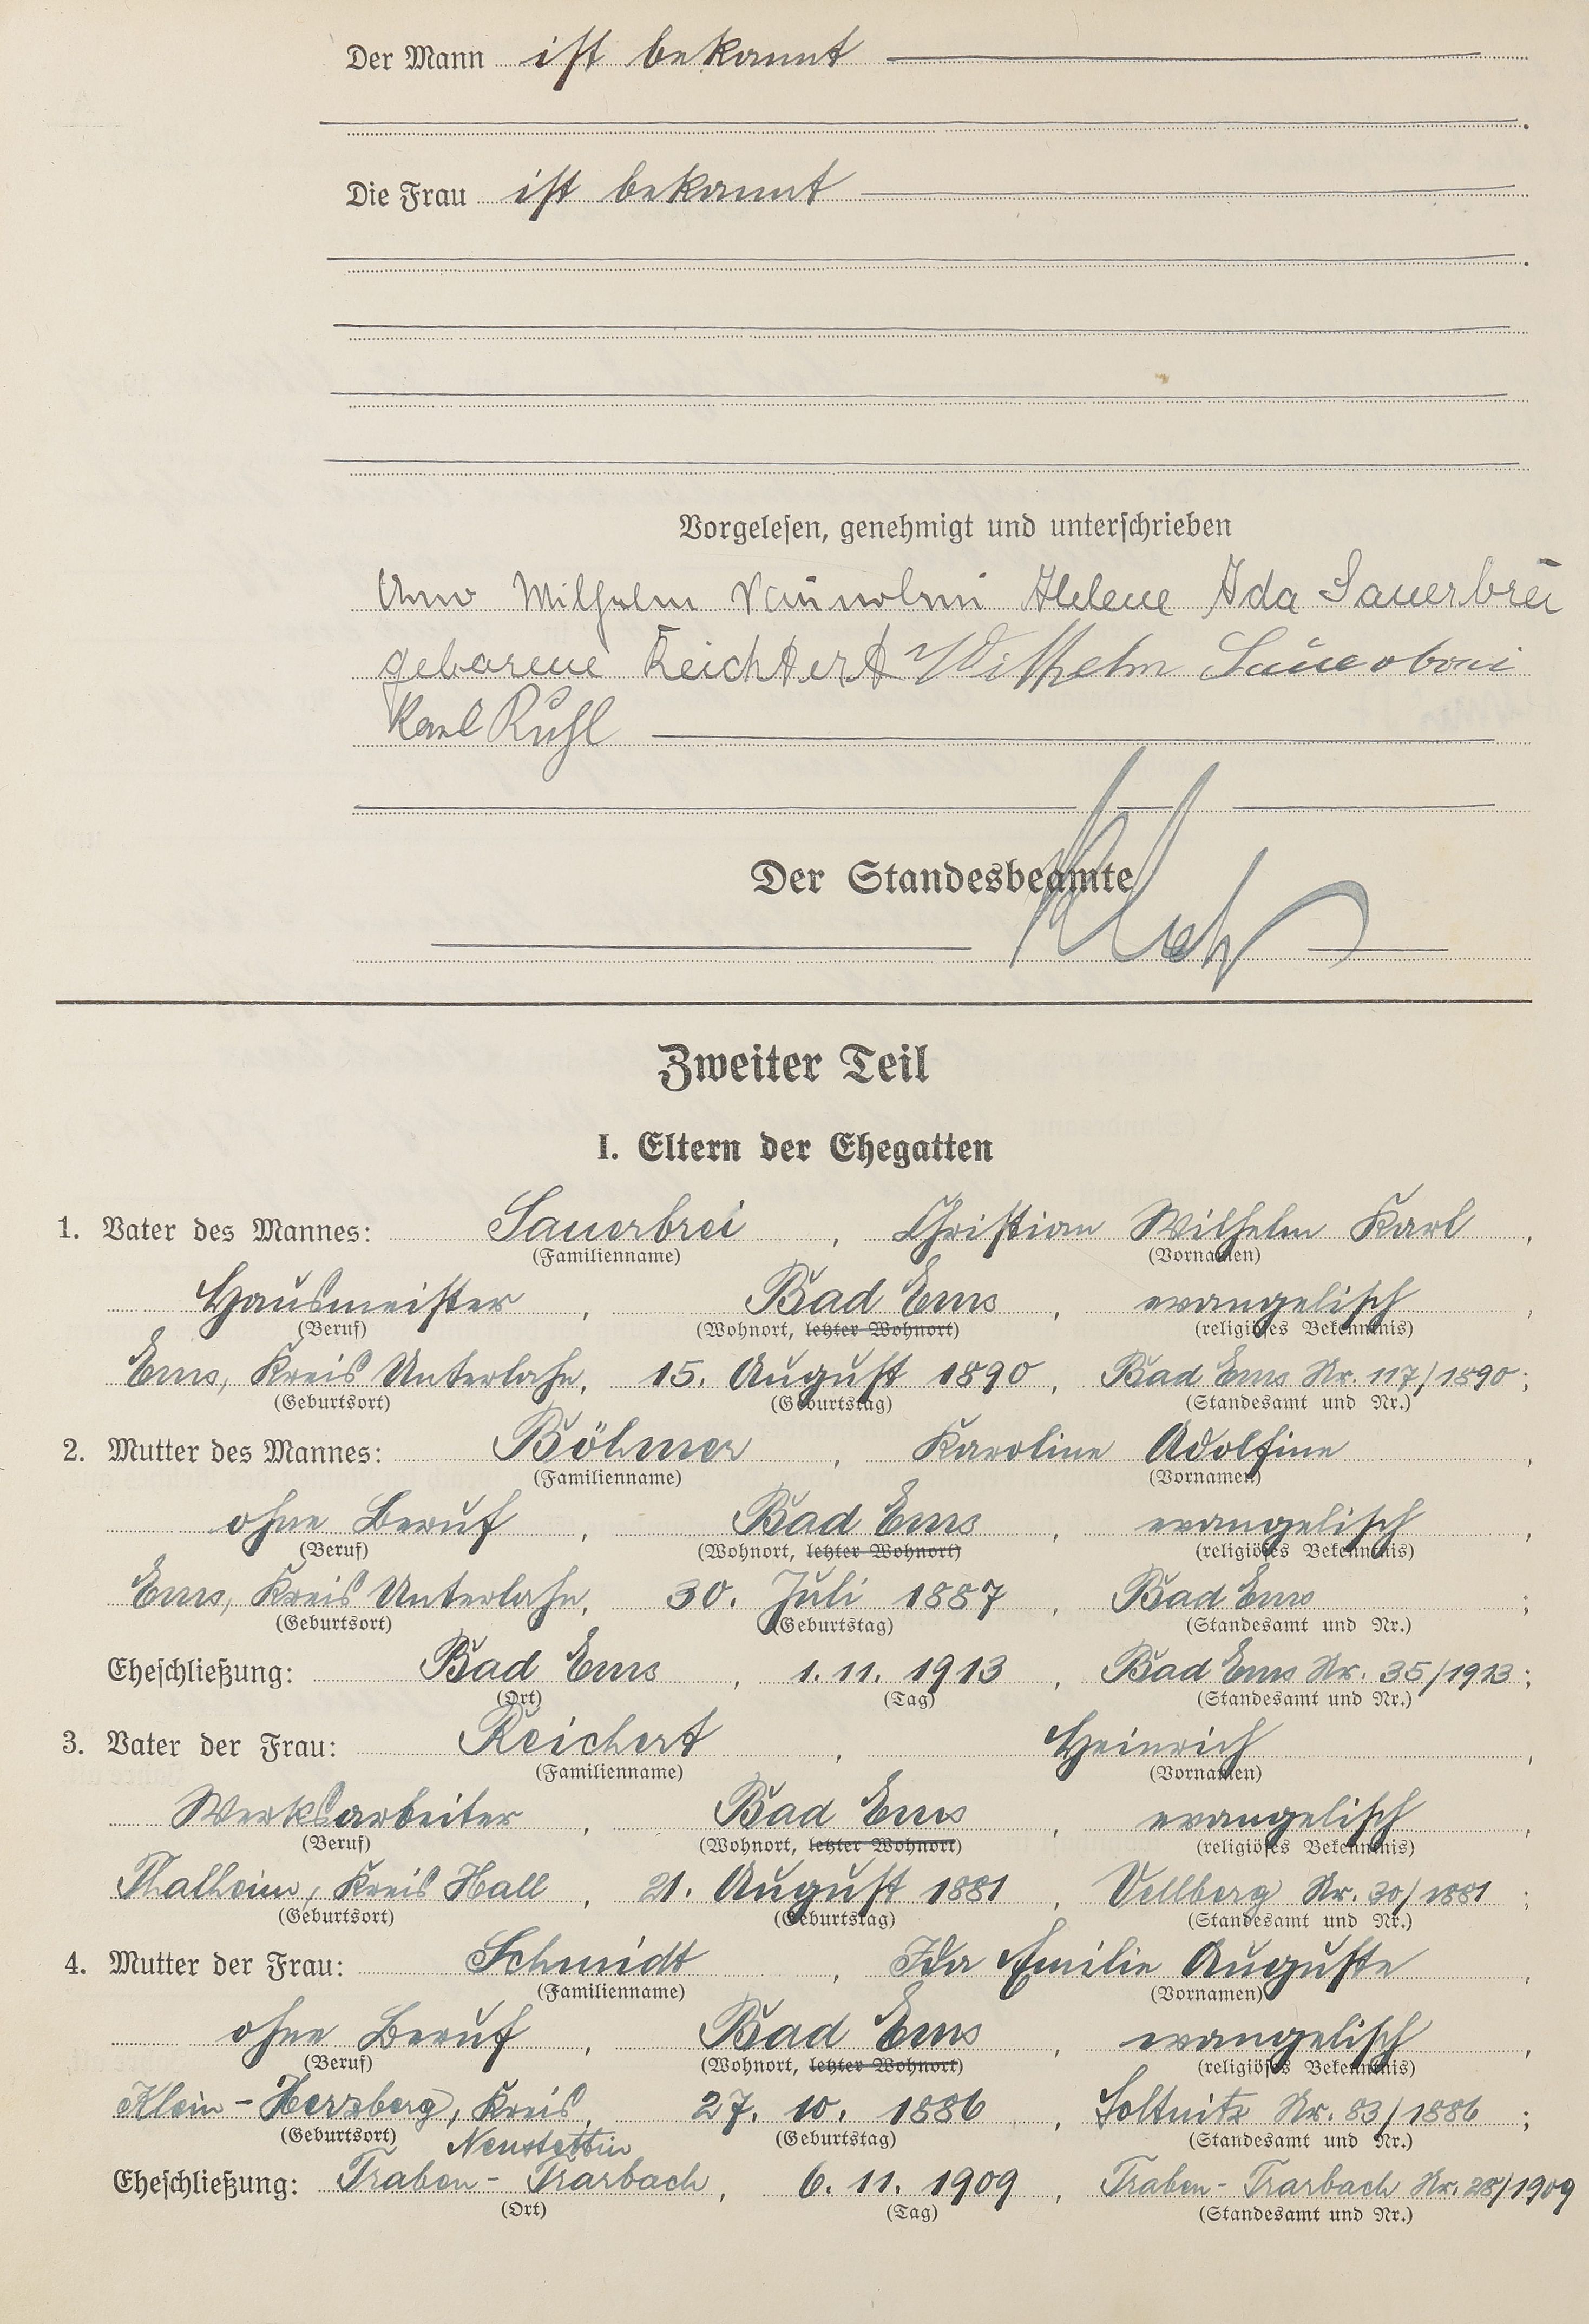 Der Mann ist bekannt
Die Frau ist bekannt
Vorgelesen, genehmigt und unterschrieben
Wilhelm Helene Ida Sauerbrei
geborene Reichert Wilhelm Sauerbrei
Karl Rühl
Der Standesbeamte
Zweiter Teil
I. Eltern der Ehegatten
1. Vater des Mannes: Sauerbrei, Christian Wilhelm Karl,
(Familienname) (Vornamen)
Hausmeister, Bad Ems, evangelisch,
(Beruf) (Wohnort, letzter Wohnort) (religiöses Bekenntnis)
Ems, Kreis Unterlahn, 15. August 1890, Bad Ems Nr. 117/1890;
(Geburtsort) (Geburtstag) (Standesamt und Nr.)
2. Mutter des Mannes: Böhmer, Karoline Adolfine,
(Familienname) (Vornamen)
ohne Beruf, Bad Ems, evangelisch,
(Beruf) (Wohnort, letzter Wohnort) (religiöses Bekenntnis)
Ems, Kreis Unterlahn, 30. Juli 1887, Bad Ems;
(Geburtsort) (Geburtstag) (Standesamt und Nr.)
Eheschließung: Bad Ems, 1. 11. 1913, Bad Ems Nr. 35/1913;
(Ort) (Tag) (Standesamt und Nr.)
3. Vater der Frau: Reichert, Heinrich,
(Familienname) (Vornamen)
Werksarbeiter, Bad Ems, evangelisch,
(Beruf) (Wohnort, letzter Wohnort) (religiöses Bekenntnis)
Thalheim, Kreis Hall, 21. August 1881, Vellberg Nr. 30/1881;
(Geburtsort) (Geburtstag) (Standesamt und Nr.)
4. Mutter der Frau: Schmidt, Ida Emilie Auguste,
(Familienname) (Vornamen)
ohne Beruf, Bad Ems, evangelisch,
(Beruf) (Wohnort, letzter Wohnort) (religiöses Bekenntnis)
Klein-Herzberg, Kreis, 27. 10. 1886, Soltnitz Nr. 83/1886;
(Geburtsort) Neustettin (Geburtstag) (Standesamt und Nr.)
Eheschließung: Traben-Trarbach, 6. 11. 1909, Traben-Trarbach Nr. 28/1909
(Ort) (Tag) (Standesamt und Nr.)